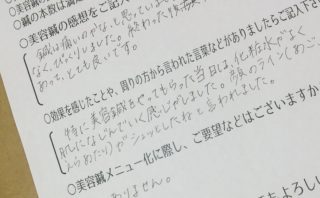 ○鍼の本数は満
○美容鍼の感想をご記入
鍼は痛いのかなと思っていま
なく、びっくりしました。終わった後
あって、とても良いです。
○効果を感じたことや、周りの方から言われた言葉などがありましたらご記入下さ
特に美容鍼をやってもらった当日は、化粧水がなく
肌になじんでいく感じがしました。顔のライン(あご
らあたり)がシュッとしたねと言われました。
○美容鍼メニュー化に際し、ご要望などはございますか
ありません。
てもよろしい